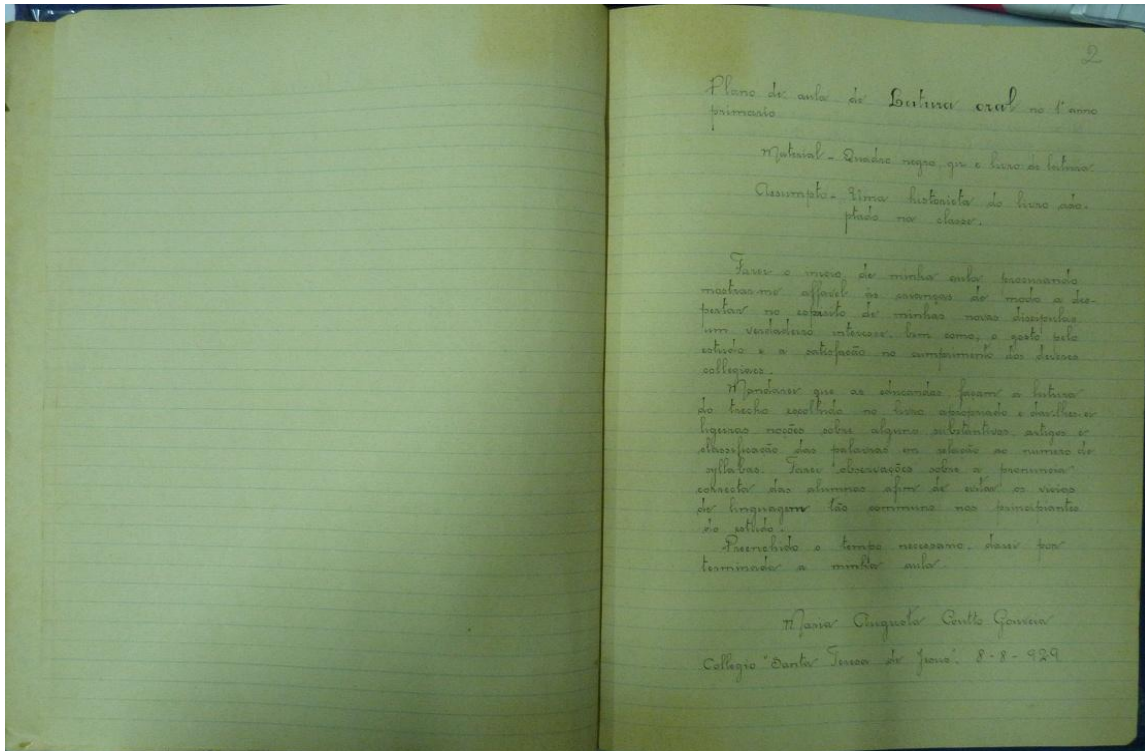 2
Plano de aula de Leitura oral no 1º anno
primario
Material - Quadro negro, giz e livro de leitura
Assumpto - Uma historieta do livro ado-
ptado na classe.
Farei o inicio, de minha aula procurando
mostrar-me affavel ás crianças de modo a des-
pertar no espirito de minhas novas discipulas
um verdadeiro interesse, bem como, o gosto pelo
estudo e a satisfação no cumprimento dos deveres
collegiaes.
Mandarei que as educandas façam a leitura
do trecho escolhido no livro apropriado e dar-lhes-ei
ligeiras noções sobre alguns substantivos, artigos e
classificação das palavras em relação ao numero de
syllabas. Farei observações sobre a pronuncia
correcta das alumnas afim de evitar os vicios
de linguagem tão communs nos principiantes
do estudo.
Preenchido o tempo necessario, darei por
terminada a minha aula.
Maria Augusta Coutto Gouveia
Collegio "Santa Teresa de Jesus". 8-8-929